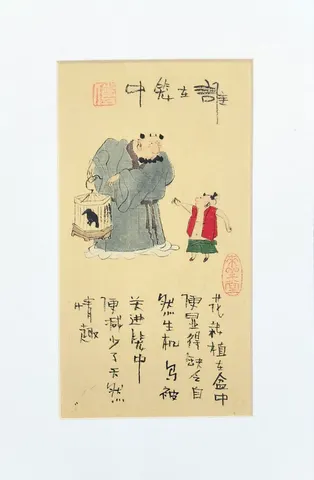 誰在笼中
花栽植在盆中
便显得缺乏自
然生机 鸟被
关进笼中
便减少了天然
情趣